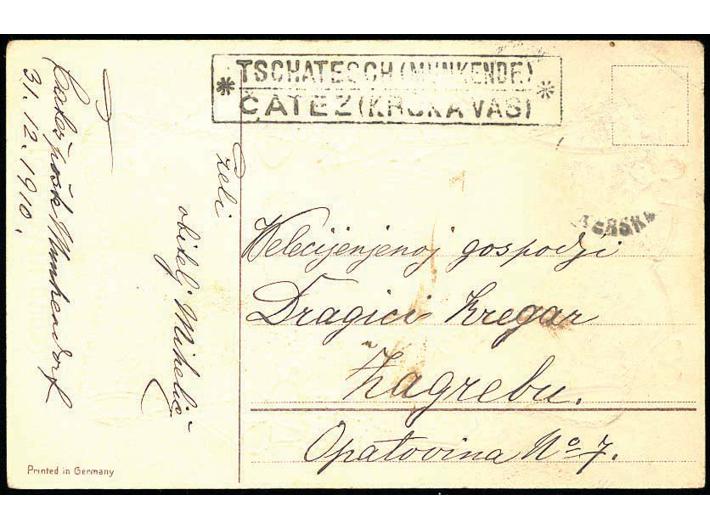 * TSCHATESCH (MUNKENDF) *
ČATEZ (KRŠKA VAS)
Čatež pošt Munkendorf
31. 12. 1910.
želi
obitelj Mihelić
Velecijenjenoj gospodji
Dragici Kregar
Zagrebu.
Opatovina No 7.
Printed in Germany